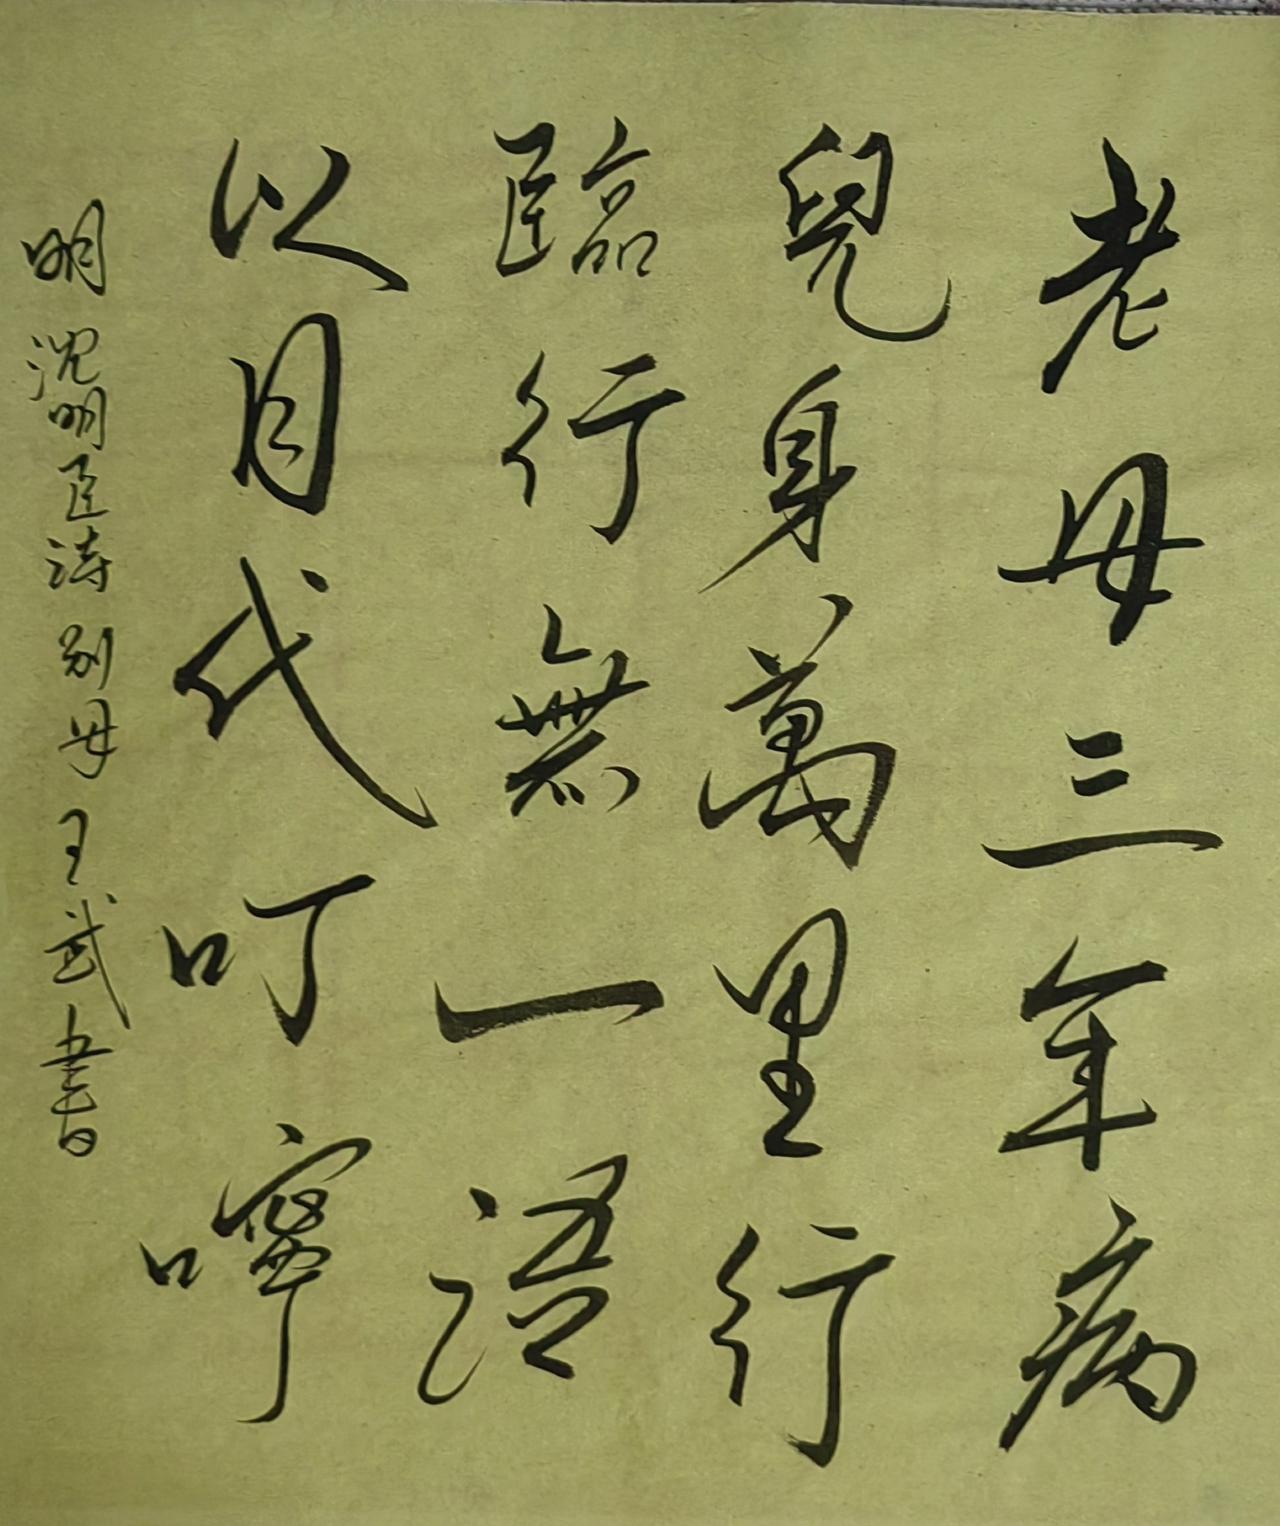 老母三年病
兒身萬里行
臨行無一語
以目代叮嚀
明沈明臣詩别母王武書